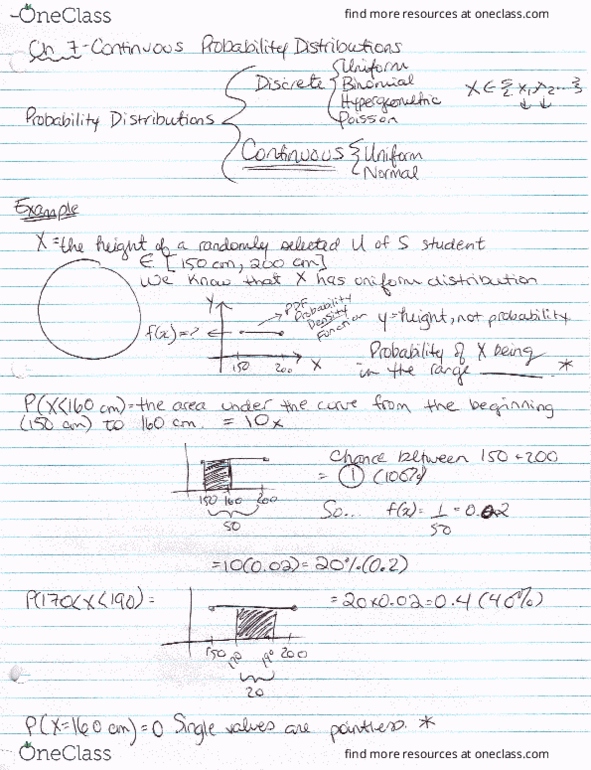 OneClass
find more resources at oneclass.com
Ch. 7 - Continuous Probability Distributions
Probability Distributions
Discrete
Uniform
Binomial
Hypergeometric
Poission
X ∈ { x₁, x₂... }
Continuous
Uniform
Normal
Example
X = the height of a randomly selected U of S student
∈ [150 cm, 200 cm]
We know that X has uniform distribution
Y
PDF
Probability
Density
Function
f(x) = ?
150 200 X
y = height, not probability
Probability of X being
in the range ______. *
P(X<160 cm) = the area under the curve from the beginning
(150 cm) to 160 cm. = 10x
150 160 200
50
Chance between 150 + 200
= 1 (100%)
So... f(x) = 1/50 = 0.02
= 10(0.02) = 20% (0.2)
P(170<X<190) =
150 170 190 200
20
= 20 x 0.02 = 0.4 (40%)
P(X=160 cm) = 0 Single values are pointless. *
OneClass
find more resources at oneclass.com